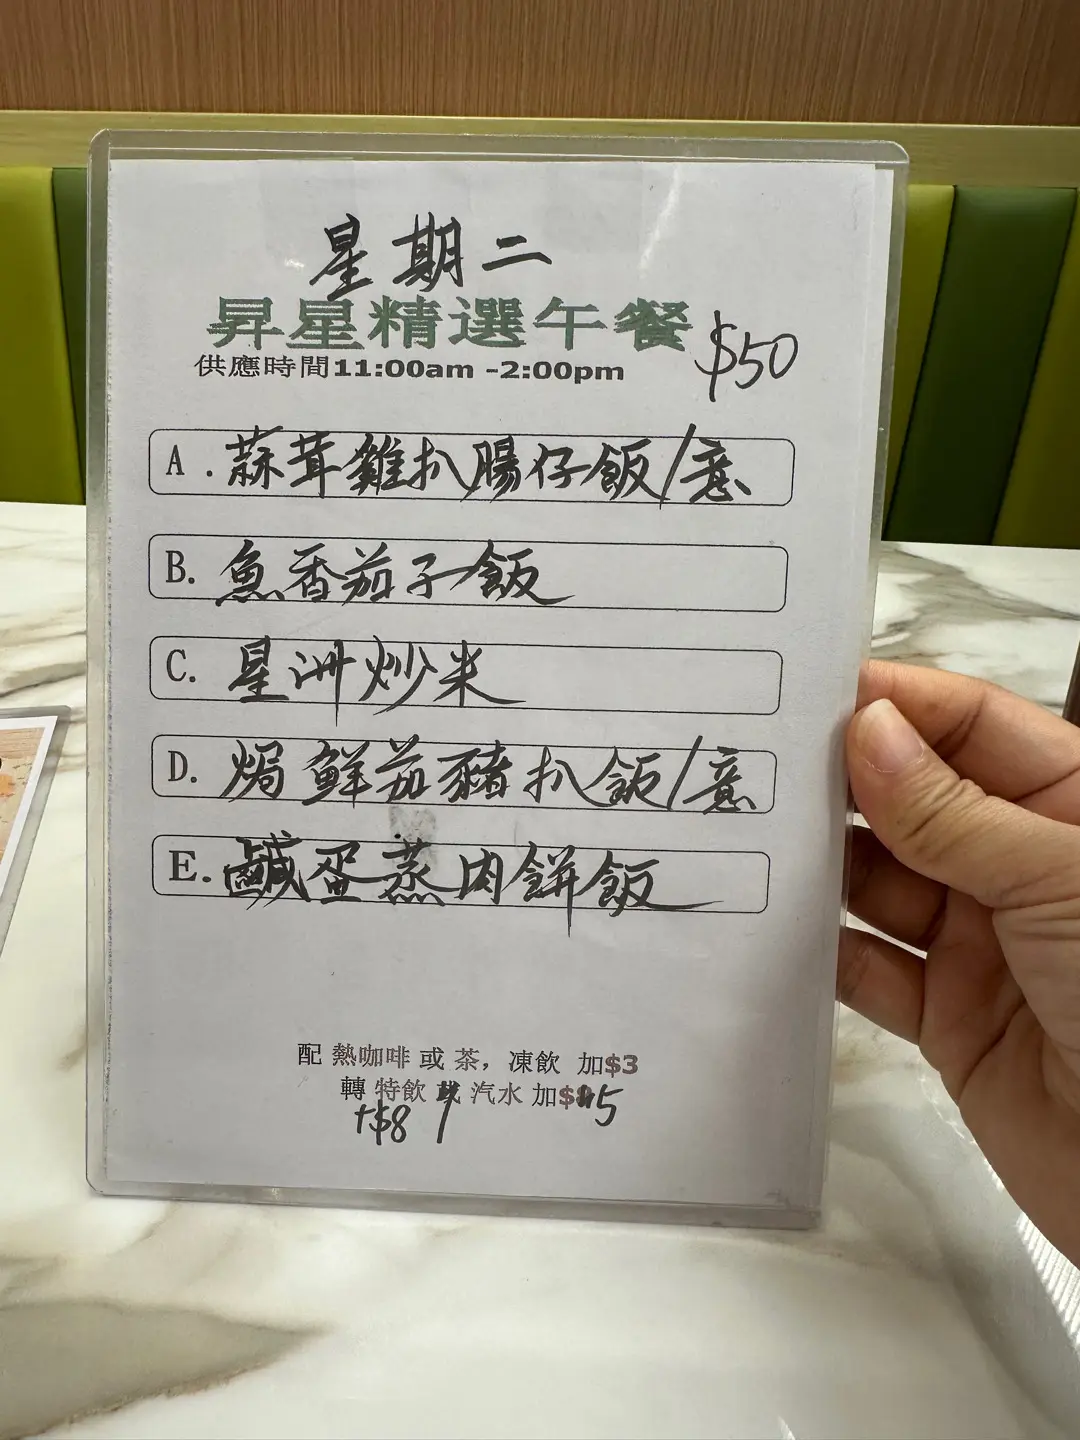 星期二
昇星精選午餐
$50
供應時間11:00am -2:00pm
A.蒜茸雞扒腸仔飯/意
B.魚香茄子飯
C.星洲炒米
D.焗鮮茄豬扒飯/意
E.鹹蛋蒸肉餅飯
配 熱咖啡 或 茶，凍飲 加$3
轉 特飲 / 汽水 加$5
+$8